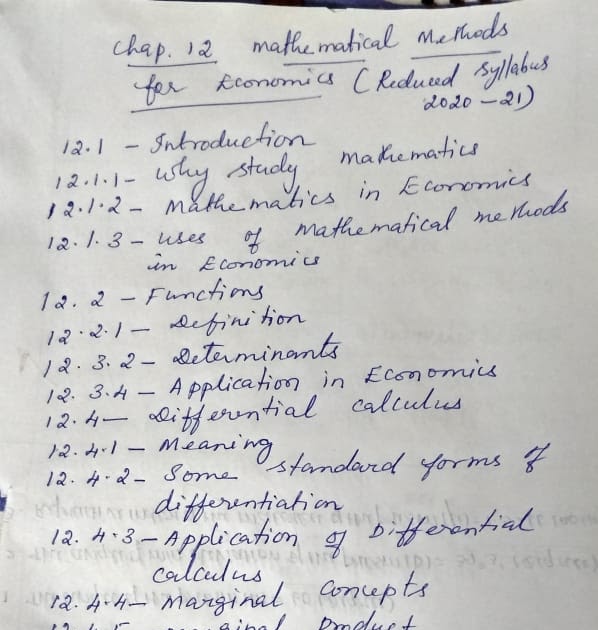 Chap. 12 mathematical Methods
for Economics (Reduced Syllabus
2020-21)
12.1 - Introduction
12.1.1 - Why study mathematics
12.1.2 - Mathematics in Economics
12.1.3 - uses of mathematical methods
in Economics
12.2 - Functions
12.2.1 - Definition
12.3.2 - Determinants
12.3.4 - Application in Economics
12.4 - Differential calculus
12.4.1 - Meaning
12.4.2 - Some standard forms of
differentiation
12.4.3 - Application of Differential
calculus
12.4.4 - Marginal concepts
product